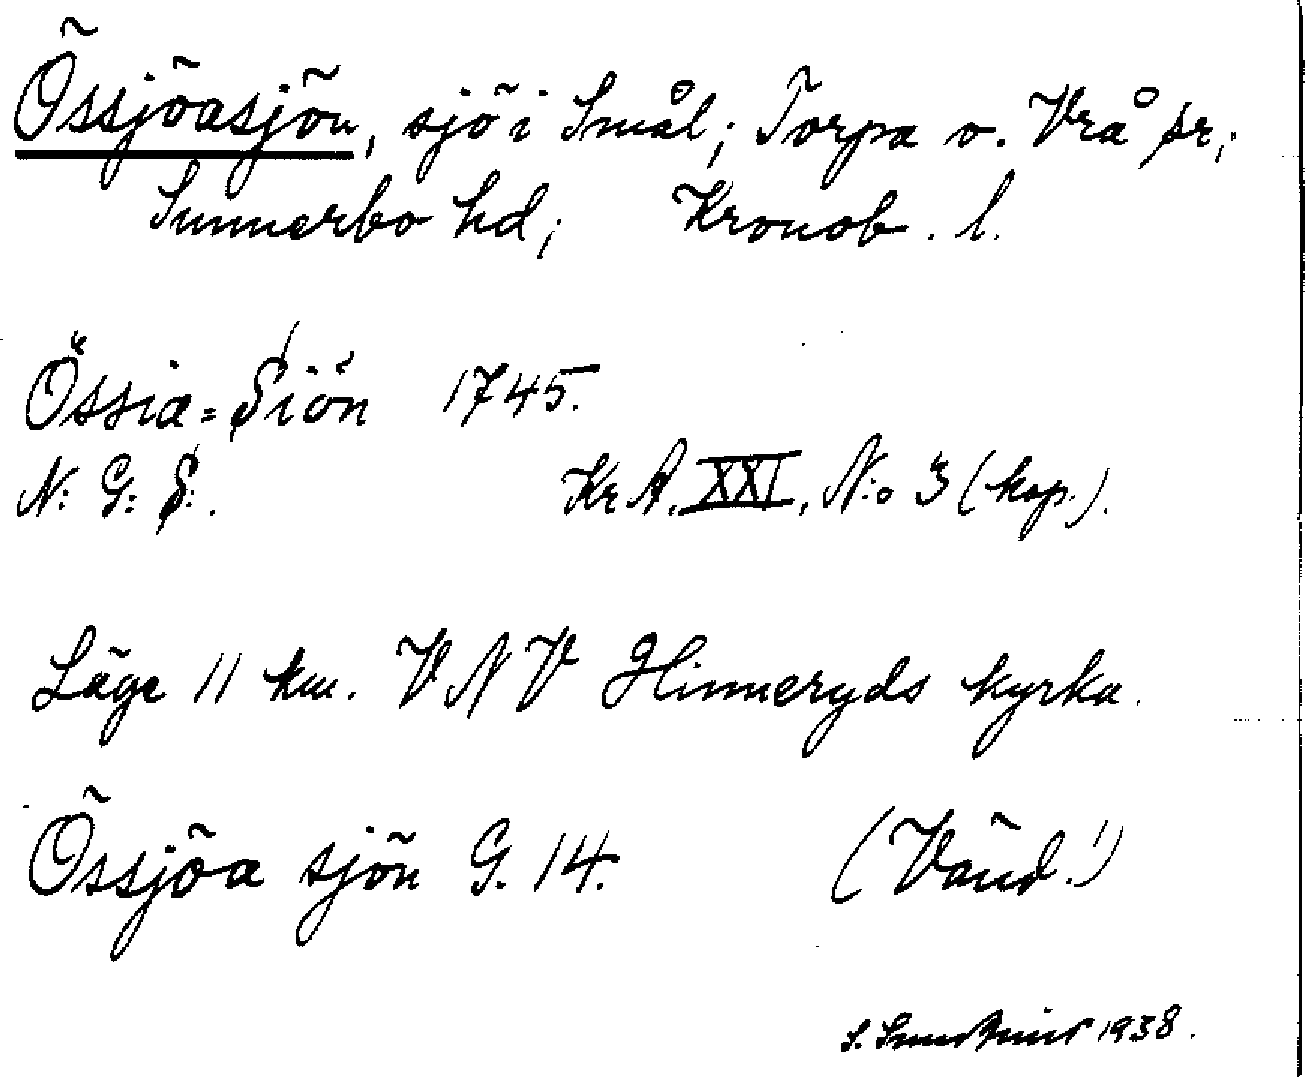 Össjöasjön, sjö i Smål; Torpa o. Vrå sr;
Sunnerbo hd; Kronob. l.
Össia=Siön 1745.
N: G: S:. KrA. XXI, N:o 3 (kop.).
Läge 11 km. VNV Hinneryds kyrka.
Össjöa sjön G. 14. (Vänd!)
S. 1938.